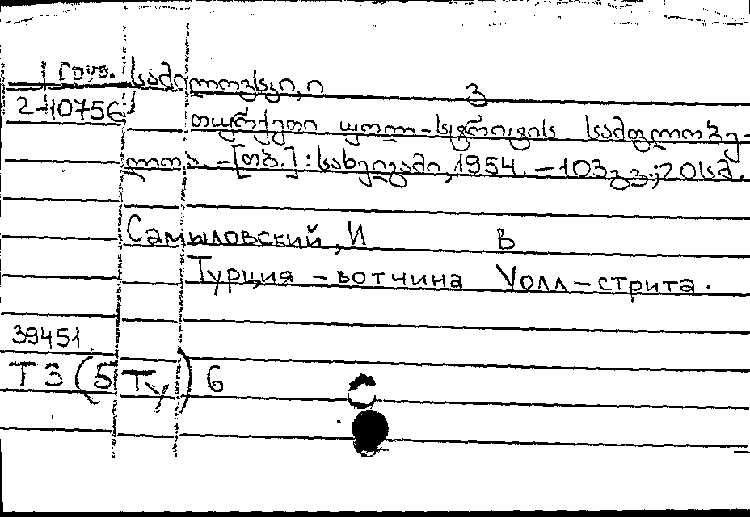 სამილოვსკი, ი
3
2-10756
თურქეთი უოლ-სტრიტის სამფლობე-
ლოა. - [თბ.] : სახელგამი, 1954. - 103 გვ.; 20 სმ.
Самыловский, И В
Турция - вотчина Уолл-стрита.
39451
Т3(5Ту)6